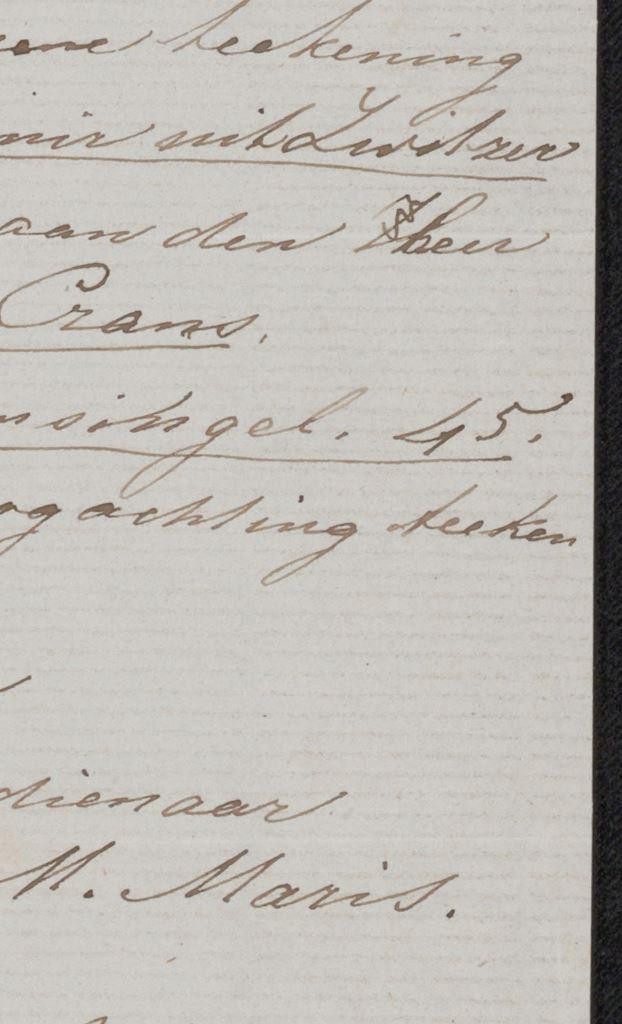 eene teekening
uit Zwitzer
aan den Heer
Crans.
nsingel. 45.
ogachting teeken
dienaar
M. Maris.